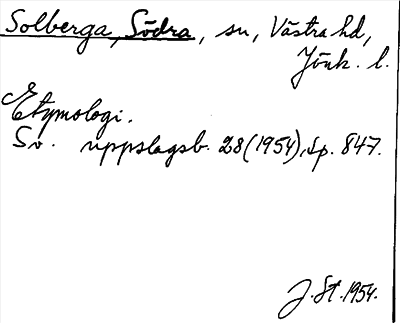 Solberga, Södra, sn, Västra hd,
Jönk. l.
Etymologi.
Sv. uppslagsb. 28 (1954), sp. 847.
J. St. 1954.